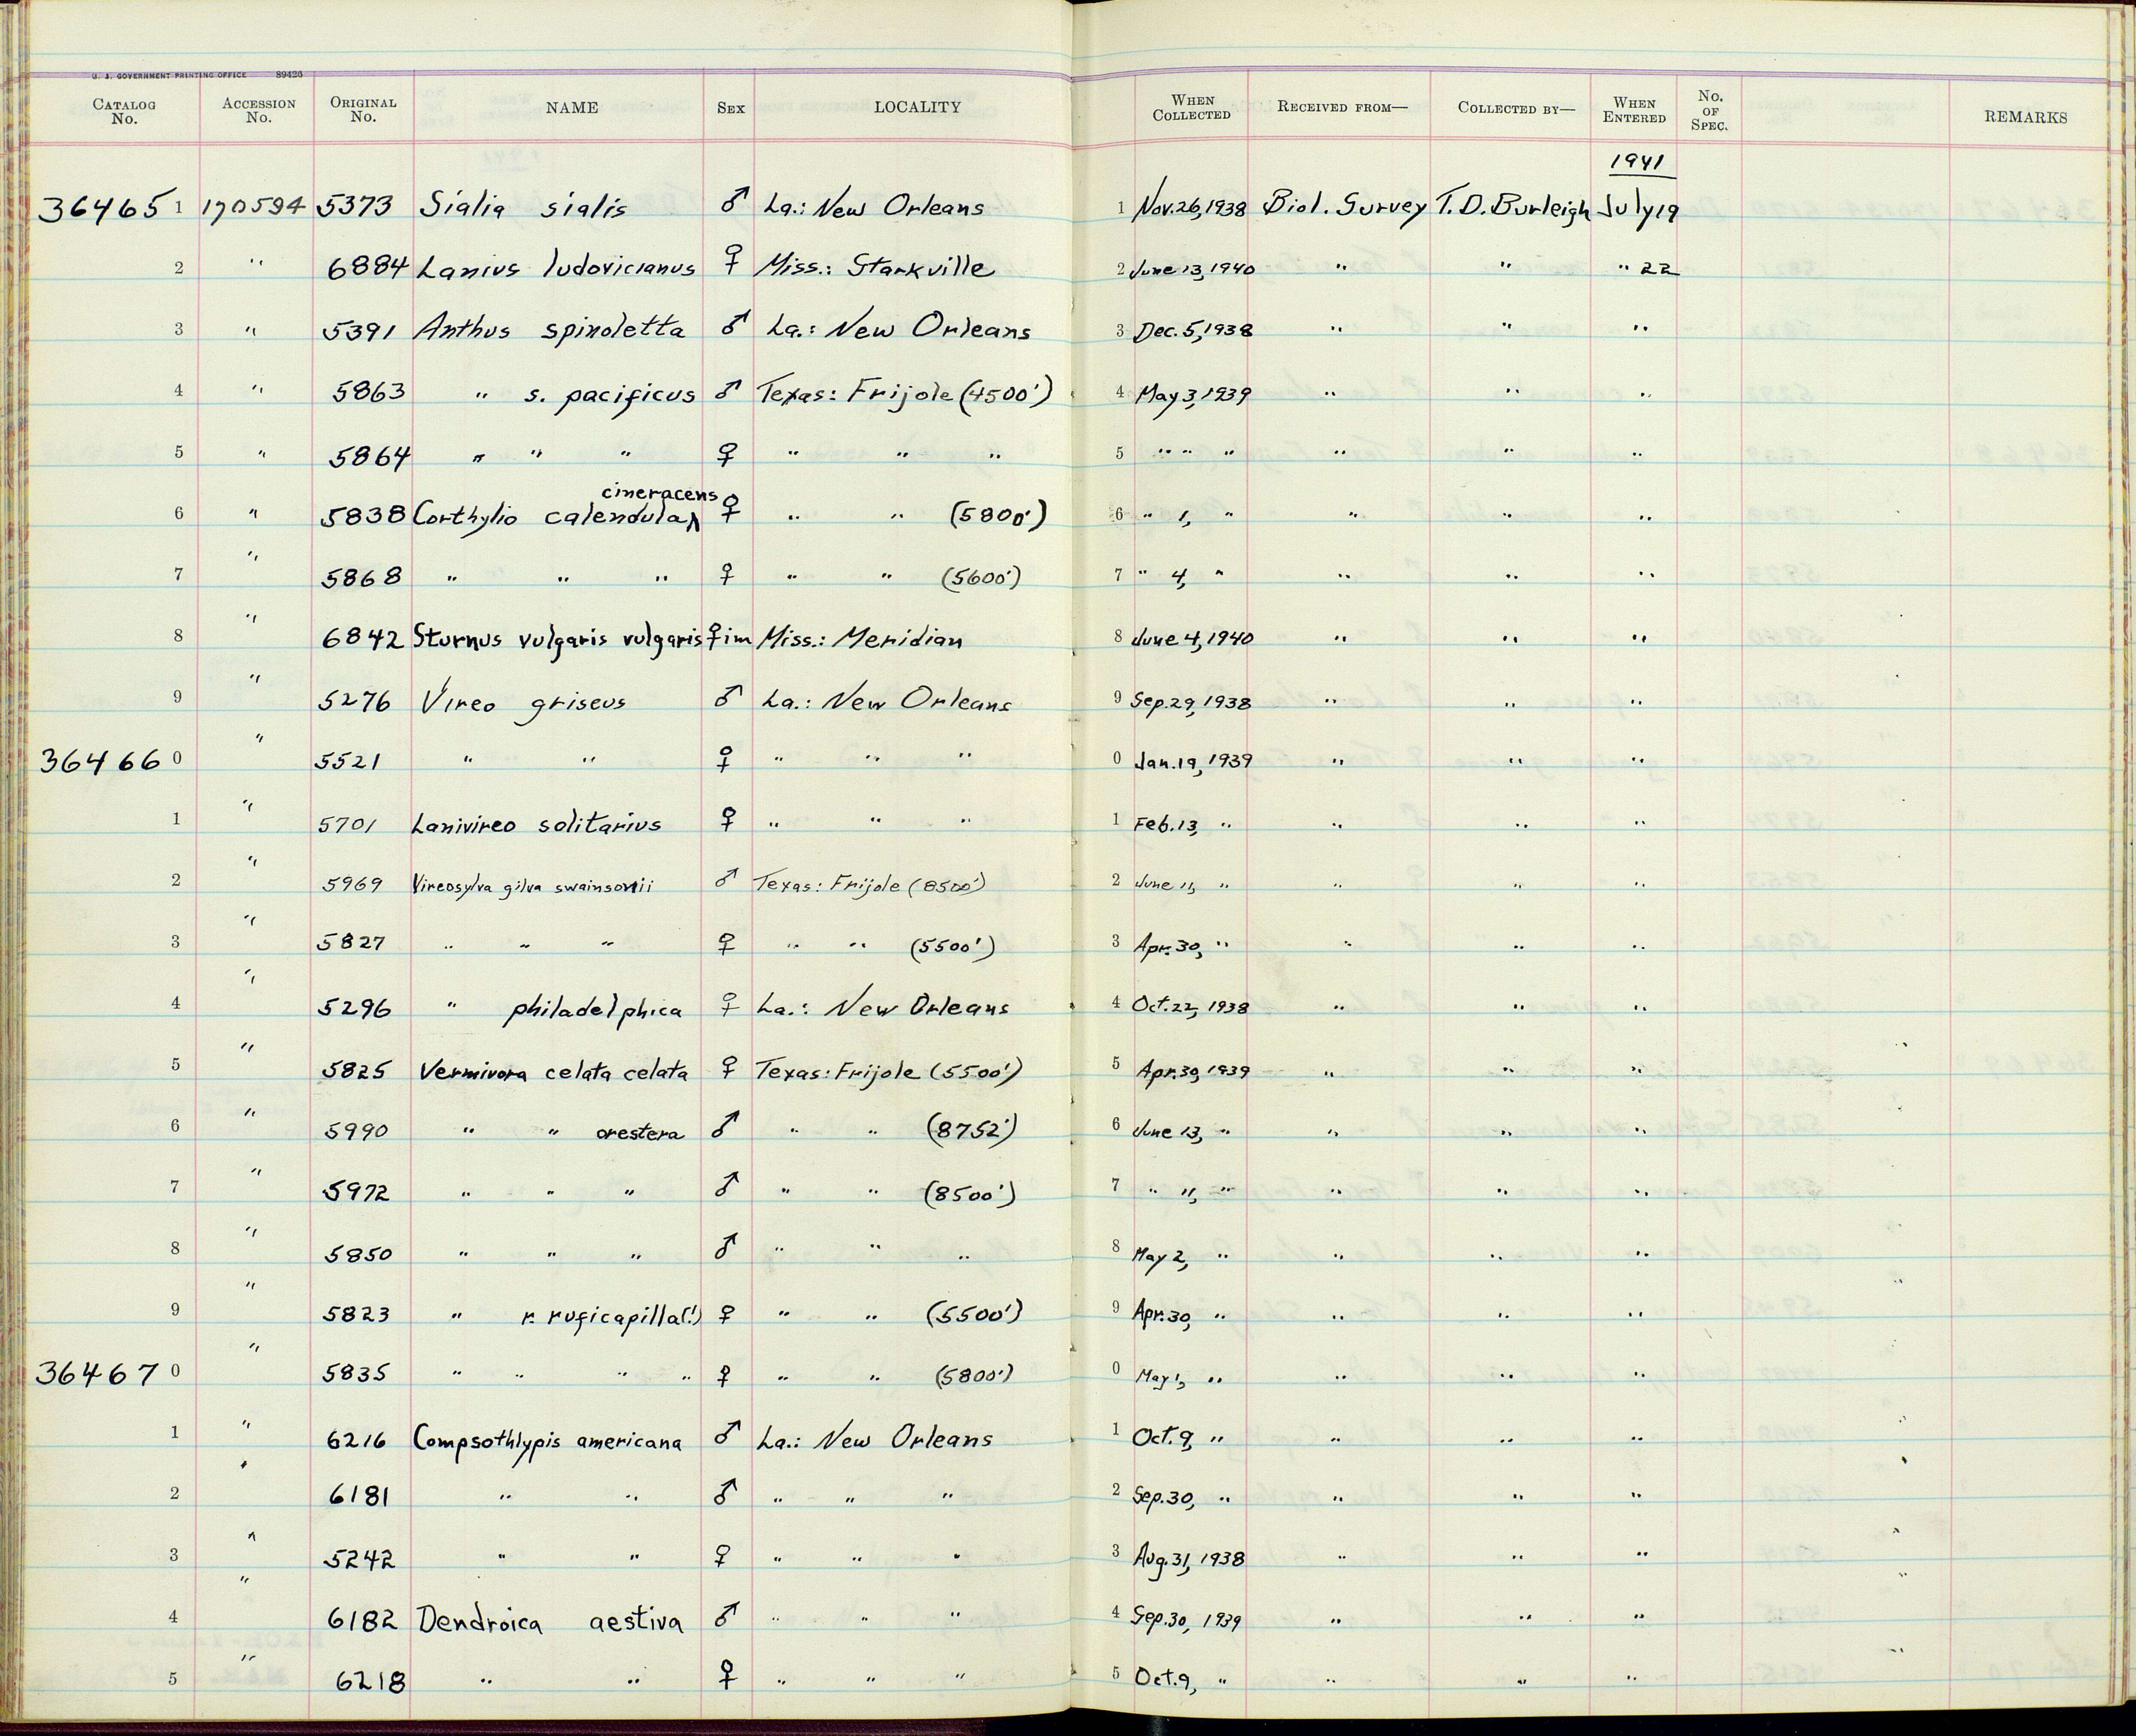 U. S. GOVERNMENT PRINTING OFFICE 89426
CATALOG No. ACCESSION No. ORIGINAL No. NAME SEX LOCALITY WHEN COLLECTED RECEIVED FROM— COLLECTED BY— WHEN ENTERED No. OF SPEC. REMARKS
1941
36465 1 170594 5373 Sialia sialis ♂ La.: New Orleans 1 Nov. 26, 1938 Biol. Survey T. D. Burleigh July 19
2 " 6884 Lanius ludovicianus ♀ Miss.: Starkville 2 June 13, 1940 " " " 22
3 " 5391 Anthus spinoletta ♂ La.: New Orleans 3 Dec. 5, 1938 " " "
4 " 5863 " s. pacificus ♂ Texas: Frijole (4500') 4 May 3, 1939 " " "
5 " 5864 " " " ♀ " " " 5 " " " " " "
cineracens
6 " 5838 Corthylio calendula ‸ ♀ " " (5800') 6 " 1, " " " "
7 " 5868 " " " ♀ " " (5600') 7 " 4, " " " "
8 " 6842 Sturnus vulgaris vulgaris ♀ im Miss.: Meridian 8 June 4, 1940 " " "
9 " 5276 Vireo griseus ♂ La.: New Orleans 9 Sep. 29, 1938 " " "
36466 0 " 5521 " " ♀ " " " 0 Jan. 19, 1939 " " "
1 " 5701 Lanivireo solitarius ♀ " " " 1 Feb. 13, " " " "
2 " 5969 Vireosylva gilva swainsonii ♂ Texas: Frijole (8500') 2 June 11, " " " "
3 " 5827 " " " ♀ " " (5500') 3 Apr. 30, " " " "
4 " 5296 " philadelphica ♀ La.: New Orleans 4 Oct. 22, 1938 " " "
5 " 5825 Vermivora celata celata ♀ Texas: Frijole (5500') 5 Apr. 30, 1939 " " "
6 " 5990 " " orestera ♂ " " (8752') 6 June 13, " " " "
7 " 5972 " " " ♂ " " (8500') 7 " 11, " " " "
8 " 5850 " " " ♂ " " " 8 May 2, " " " "
9 " 5823 " r. ruficapilla (!) ♀ " " (5500') 9 Apr. 30, " " " "
36467 0 " 5835 " " " " ♀ " " (5800') 0 May 1, " " " "
1 " 6216 Compsothlypis americana ♂ La.: New Orleans 1 Oct. 9, " " " "
2 " 6181 " " ♂ " " " 2 Sep. 30, " " " "
3 " 5242 " " ♀ " " " 3 Aug. 31, 1938 " " "
4 " 6182 Dendroica aestiva ♂ " " " 4 Sep. 30, 1939 " " "
5 " 6218 " " ♀ " " " 5 Oct. 9, " " " "